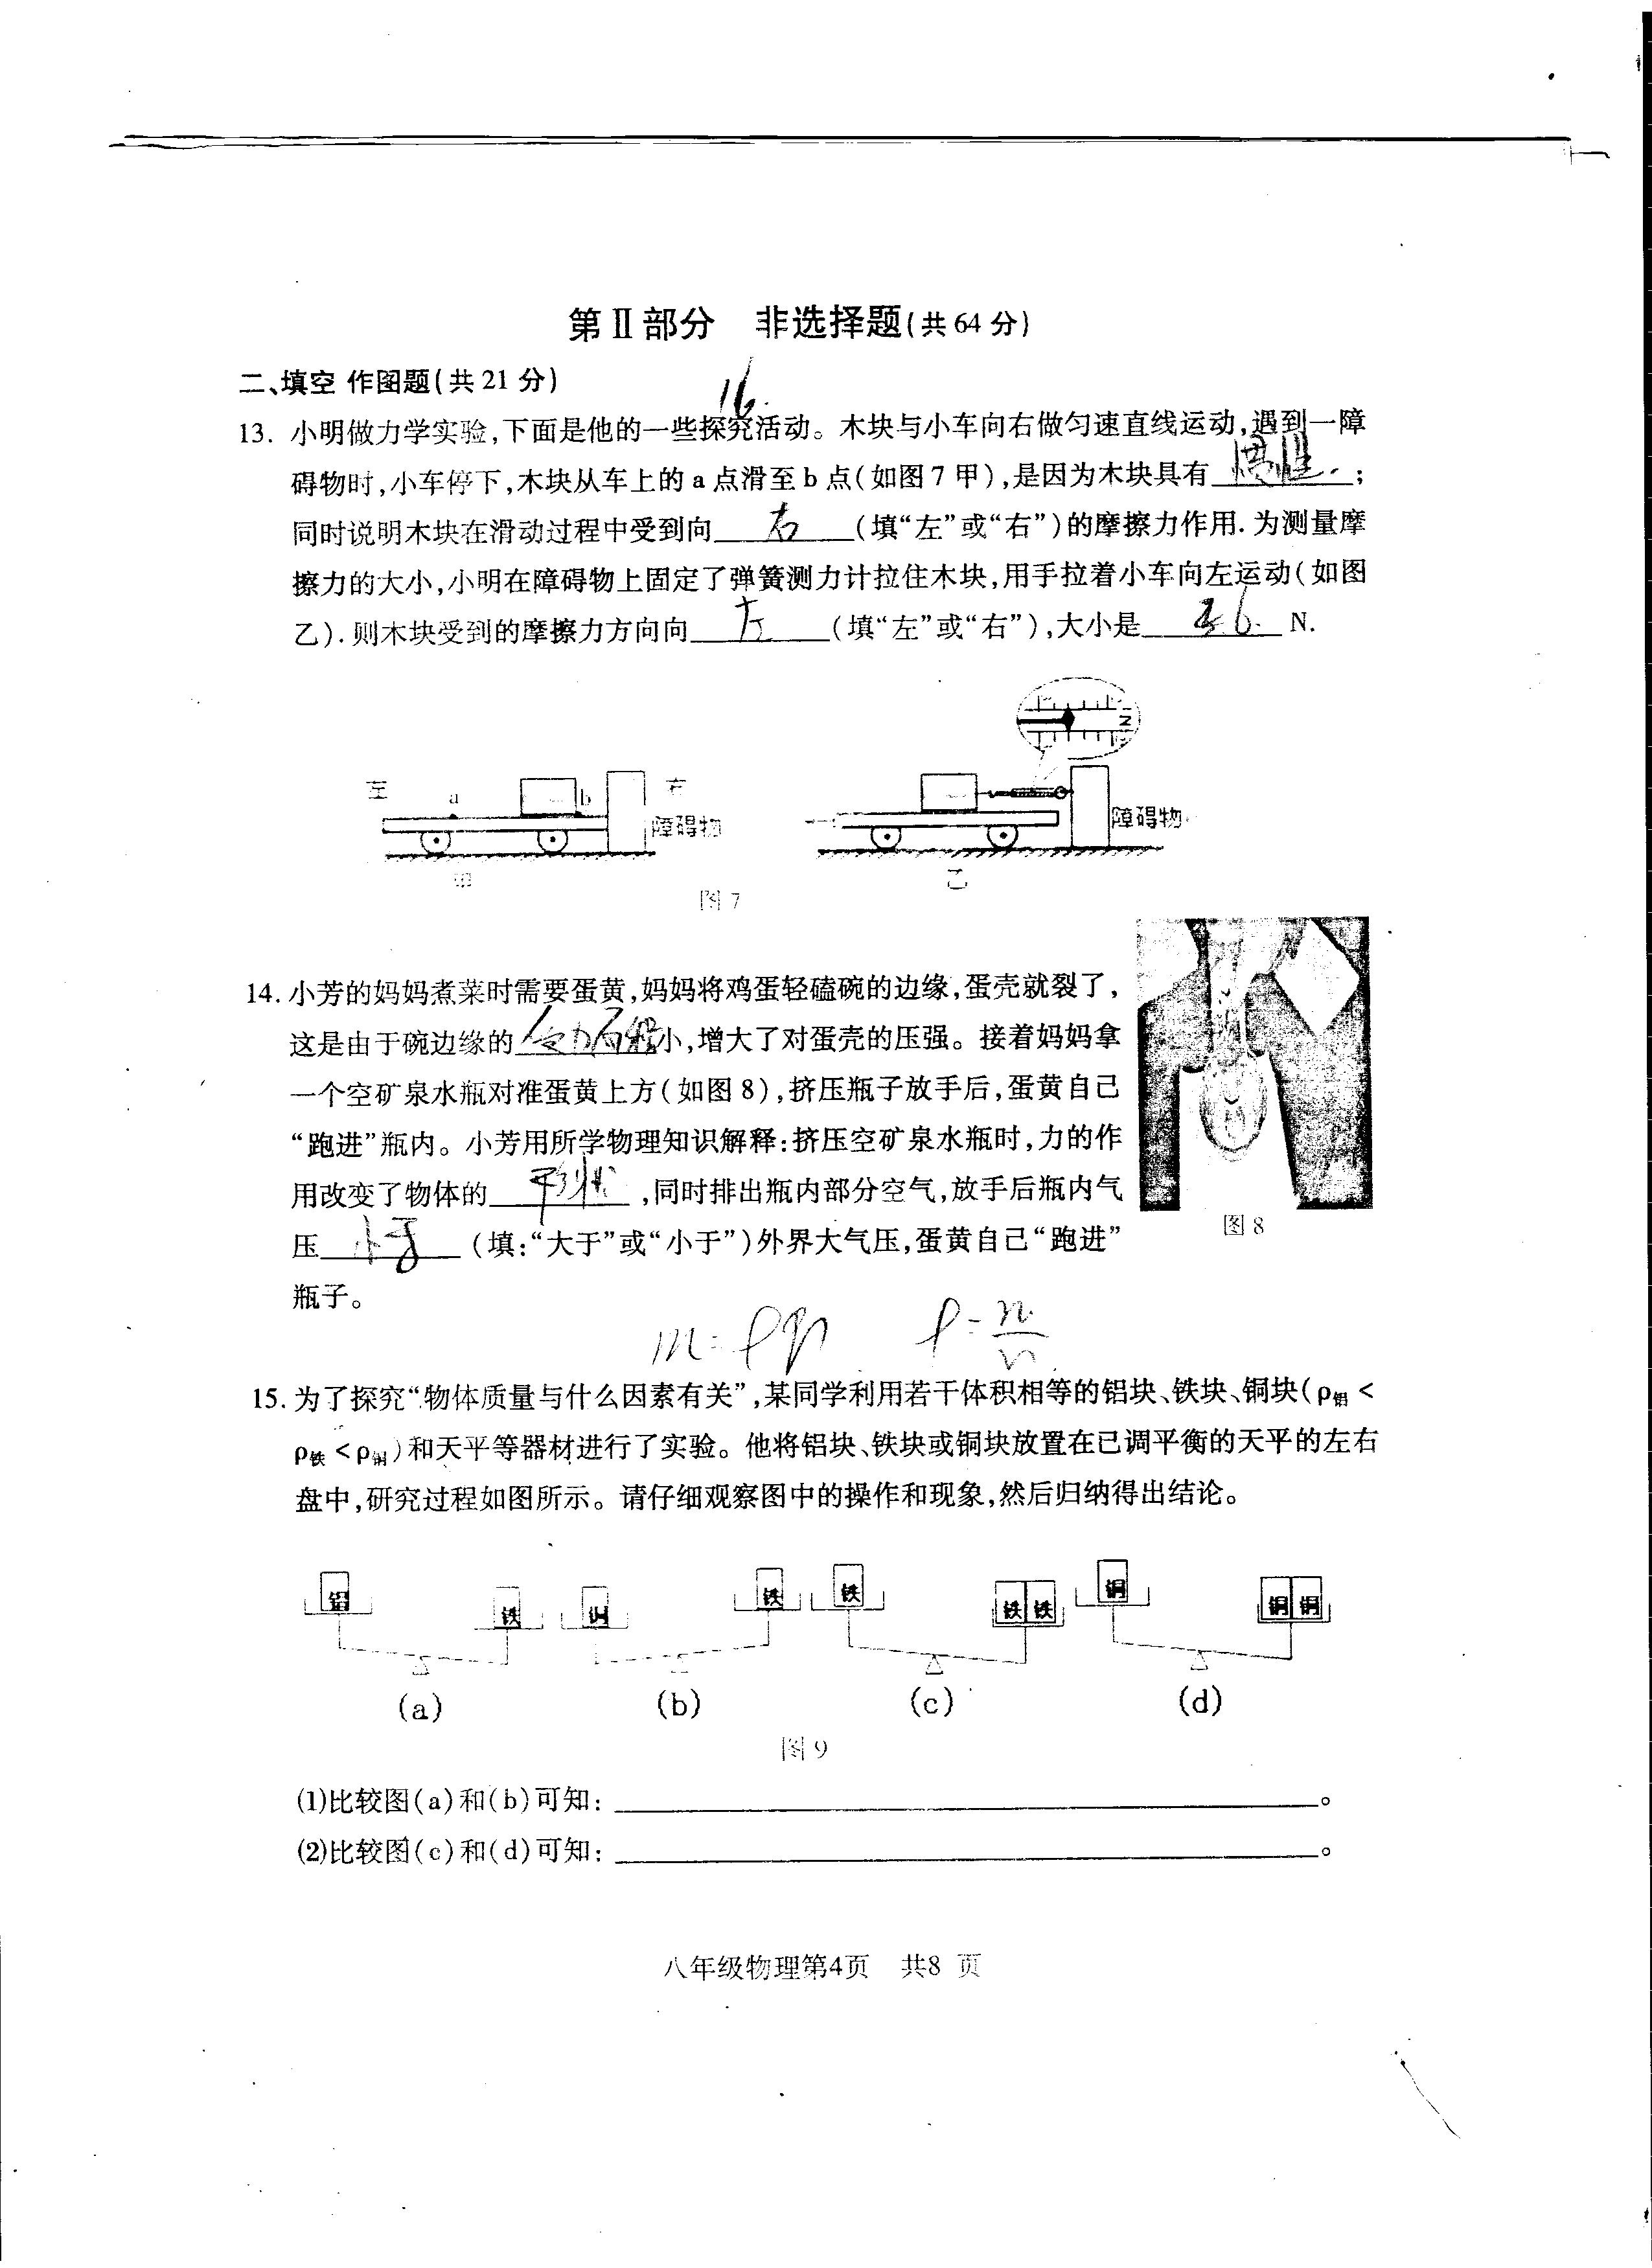 第Ⅱ部分 非选择题(共64分)
二、填空 作图题(共21分)
16.
13. 小明做力学实验,下面是他的一些探究活动。木块与小车向右做匀速直线运动,遇到一障
碍物时,小车停下,木块从车上的a点滑至b点(如图7甲),是因为木块具有 惯性. ;
同时说明木块在滑动过程中受到向 右 (填“左”或“右”)的摩擦力作用.为测量摩
擦力的大小,小明在障碍物上固定了弹簧测力计拉住木块,用手拉着小车向左运动(如图
乙).则木块受到的摩擦力方向向 左 (填“左”或“右”),大小是 N.
N
左 a b 右
障碍物
障碍物
甲
乙
图7
14. 小芳的妈妈煮菜时需要蛋黄,妈妈将鸡蛋轻磕碗的边缘,蛋壳就裂了,
这是由于碗边缘的 受力面积 小,增大了对蛋壳的压强。接着妈妈拿
一个空矿泉水瓶对准蛋黄上方(如图8),挤压瓶子放手后,蛋黄自己
“跑进”瓶内。小芳用所学物理知识解释:挤压空矿泉水瓶时,力的作
用改变了物体的 形状 ,同时排出瓶内部分空气,放手后瓶内气
压 小于 (填:“大于”或“小于”)外界大气压,蛋黄自己“跑进”
瓶子。
图8
15. 为了探究“物体质量与什么因素有关”,某同学利用若干体积相等的铝块、铁块、铜块(ρ铝<
ρ铁<ρ铜)和天平等器材进行了实验。他将铝块、铁块或铜块放置在已调平衡的天平的左右
盘中,研究过程如图所示。请仔细观察图中的操作和现象,然后归纳得出结论。
铝 铁 铜 铁 铁 铁 铁 铜 铜 铜
(a) (b) (c) (d)
图9
(1)比较图(a)和(b)可知: 。
(2)比较图(c)和(d)可知: 。
八年级物理第4页 共8页